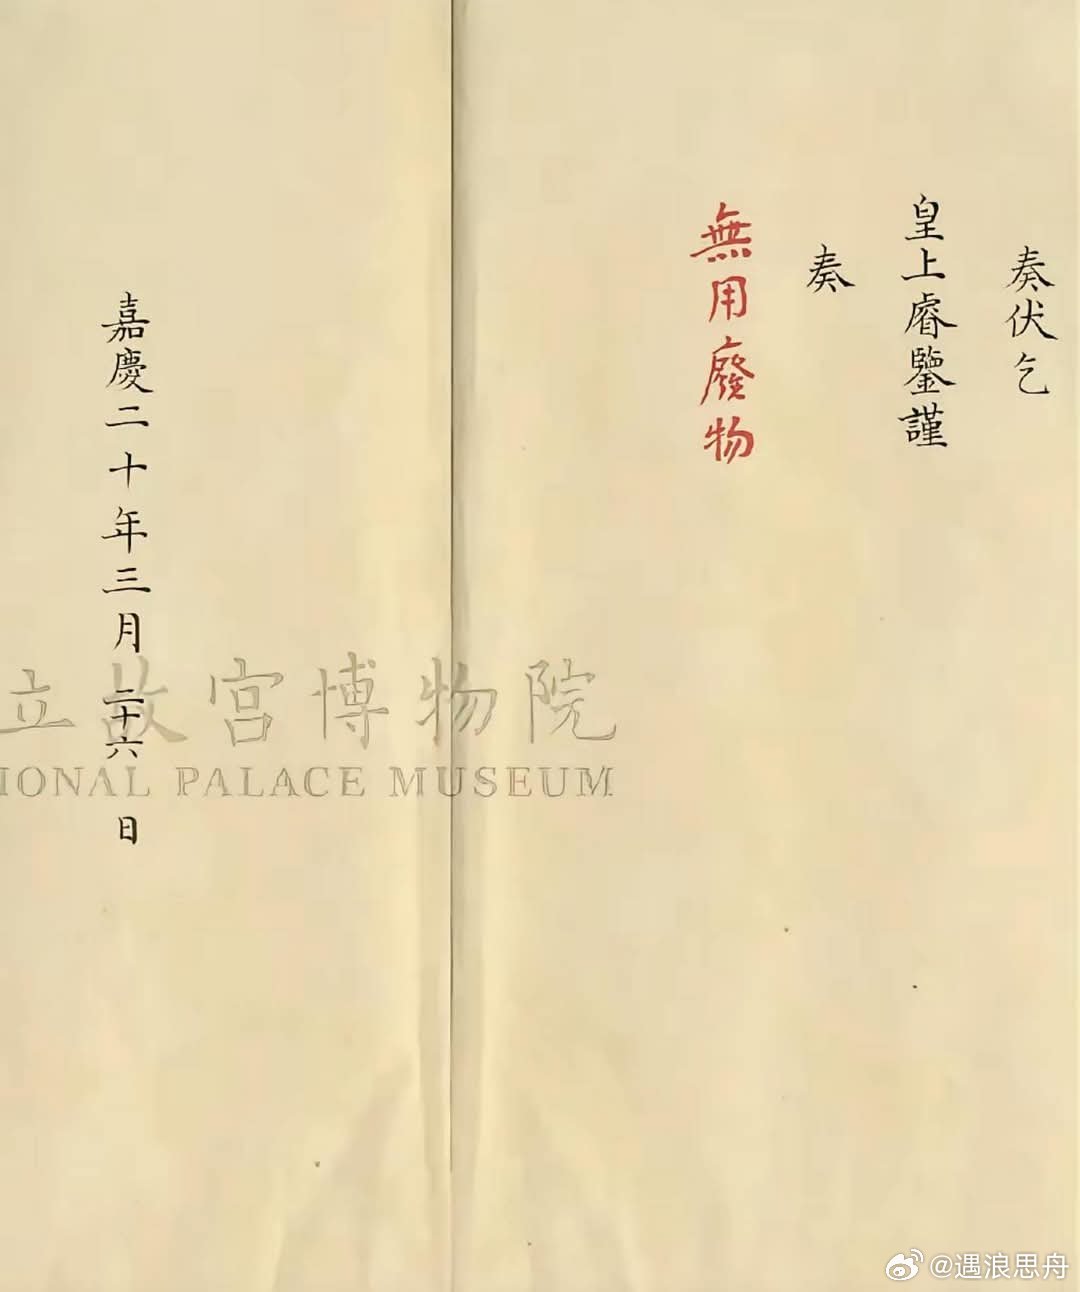 奏伏乞
皇上睿鑒謹
奏
無用廢物
嘉慶二十年三月二十六日
立故宮博物院
IONAL PALACE MUSEUM
@遇浪思舟